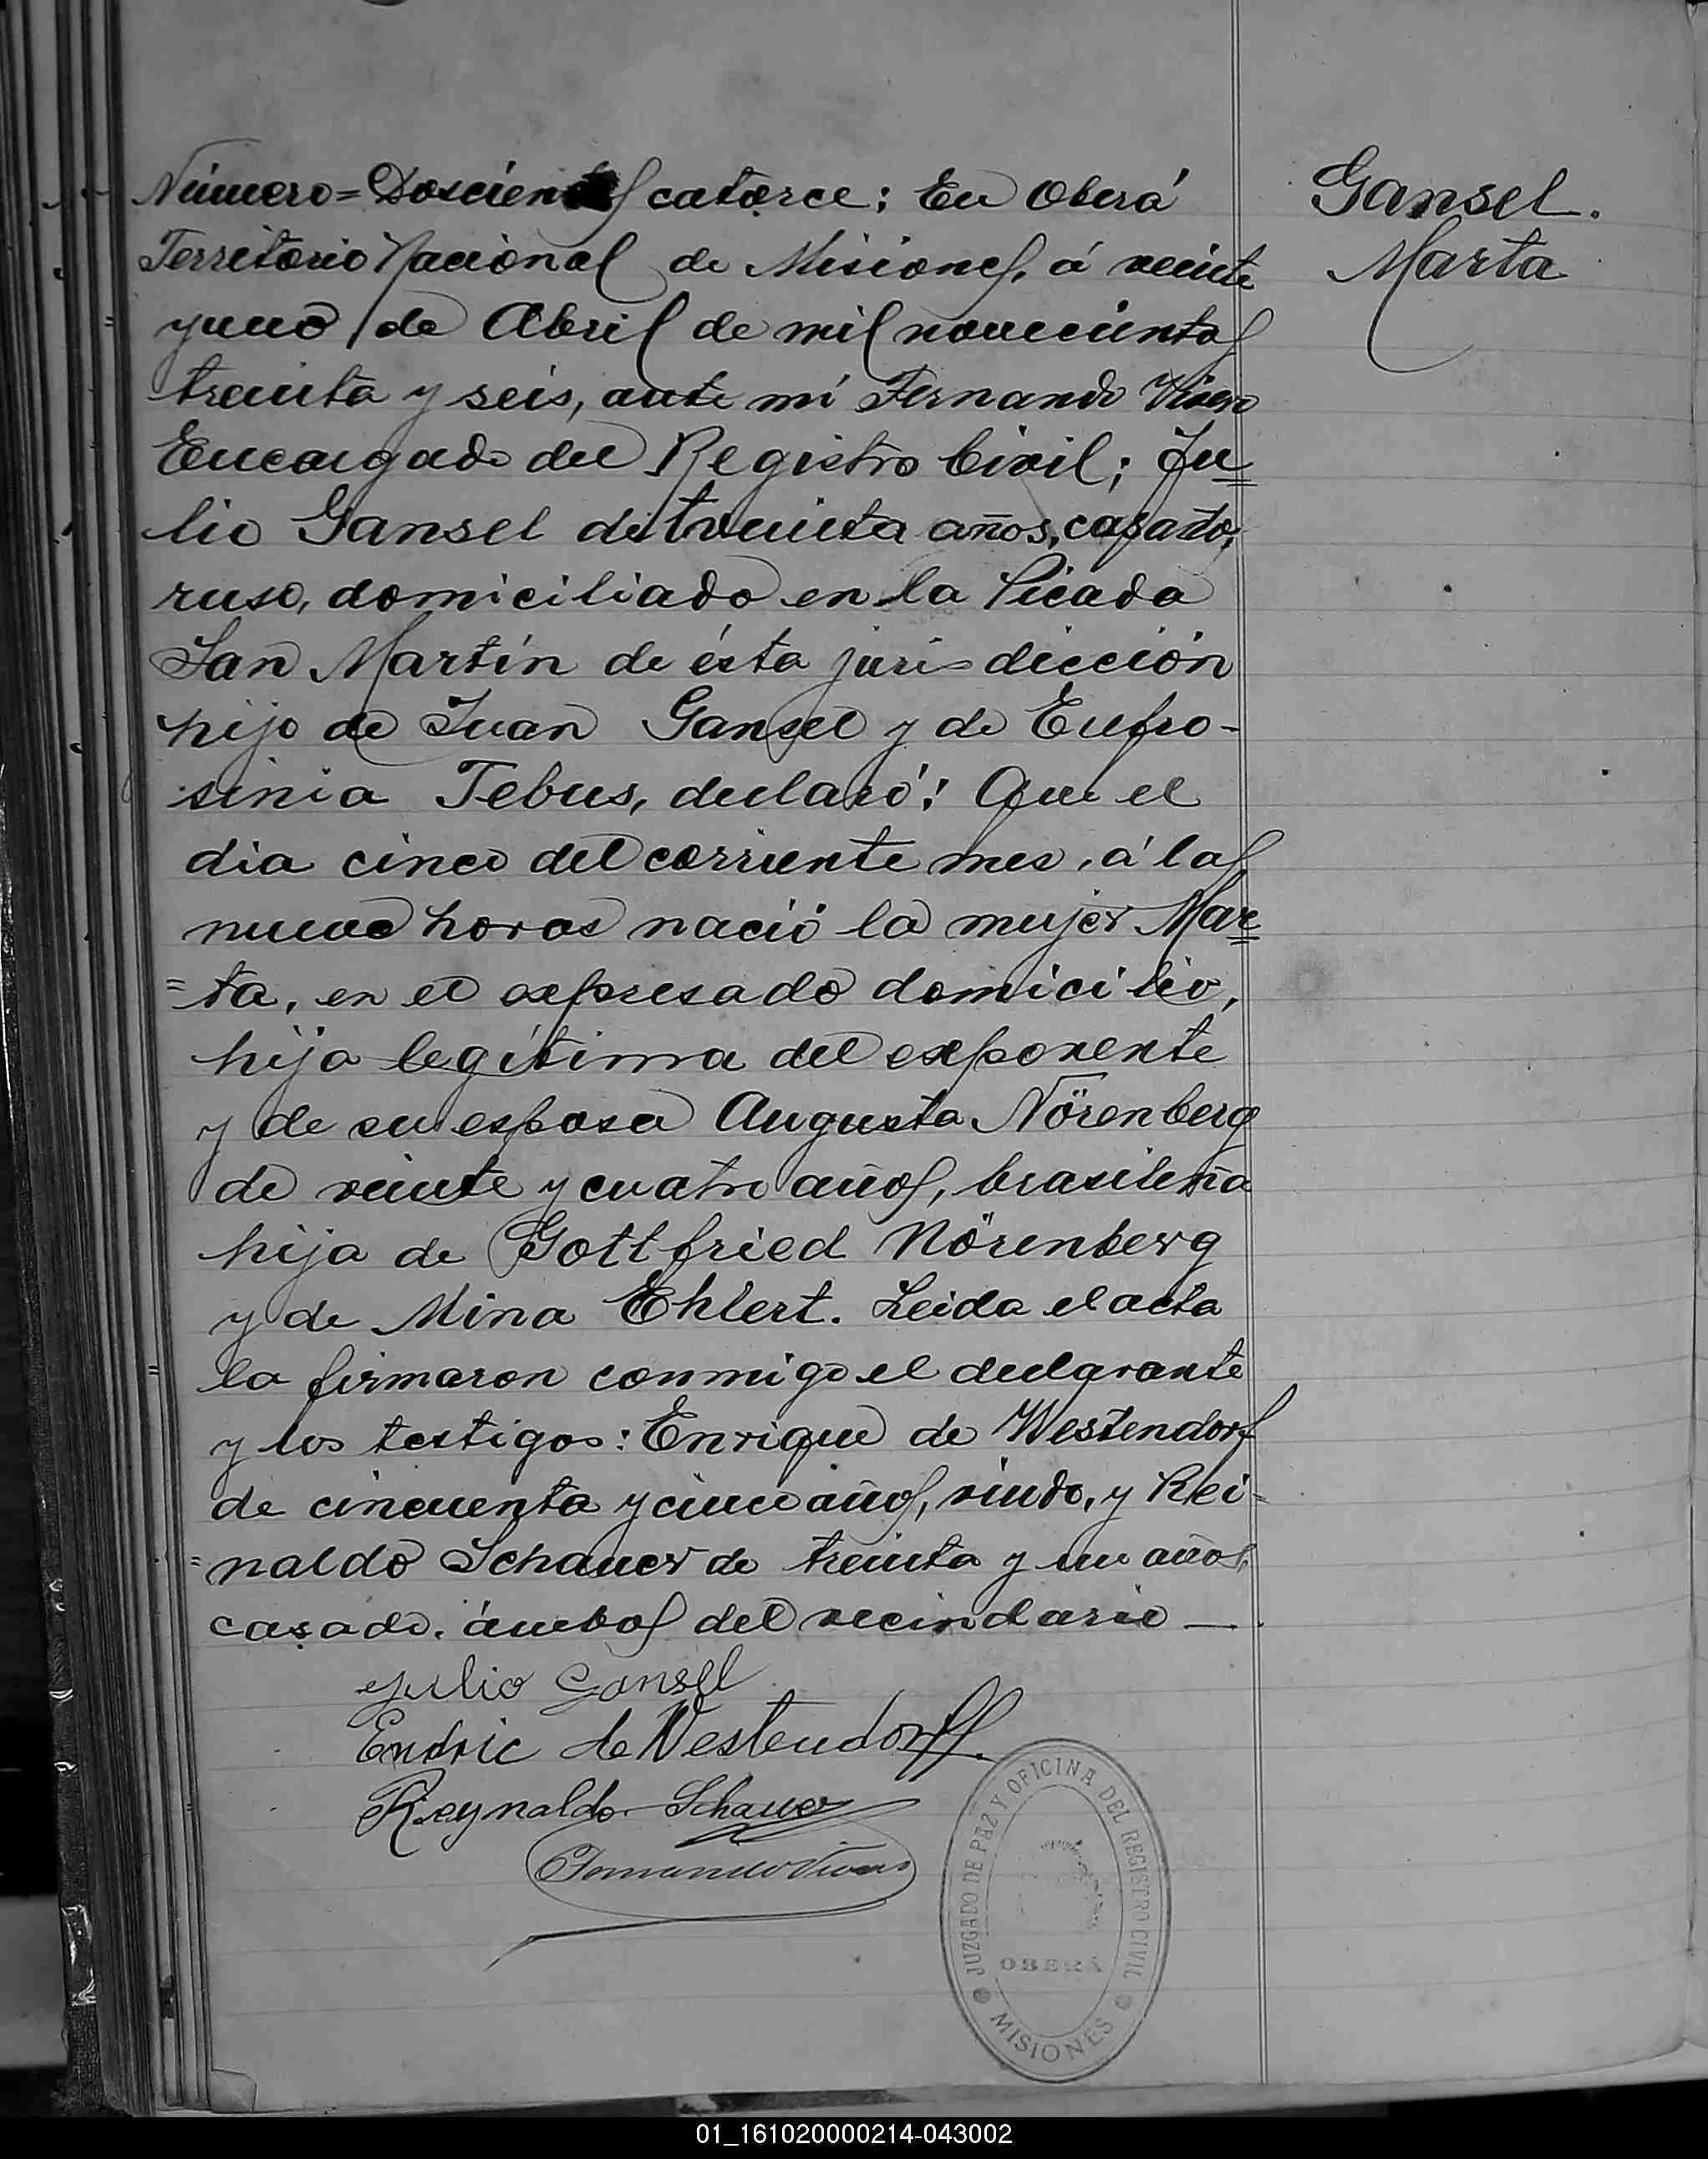 Número = Doscientos catorce; En Oberá
Territorio Nacional de Misiones, á veinte
y uno de Abril de mil novecientos
treinta y seis, ante mí Fernando Vivero
Encargado del Registro Civil; Ju=
lio Gansel de treinta años, casado,
ruso, domiciliado en la Picada
San Martín de ésta jurisdicción
hijo de Juan Gansel y de Eufro-
sinia Tebus, declaró: Que el
dia cinco del corriente mes, á las
nueve horas nació la mujer Mar=
=ta, en el expresado domicilio,
hija legítima del exponente
y de su esposa Augusta Nörenberg
de veinte y cuatro años, brasileña
hija de Gottfried Nörenberg
y de Mina Ehlert. Leida el acta
la firmaron conmigo el declarante
y los testigos: Enrique de Westendorf
de cincuenta y cinco años, viudo, y Rei-
=naldo Schauer de treinta y un años,
casado, ámbos del vecindario —
Julio Gansel
Endric de Westendorff.
Reynaldo Schauer
Fernando Vivero
Gansel.
Marta
JUZGADO DE PAZ Y OFICINA DEL REGISTRO CIVIL
OBERÁ
MISIONES
01_161020000214-043002